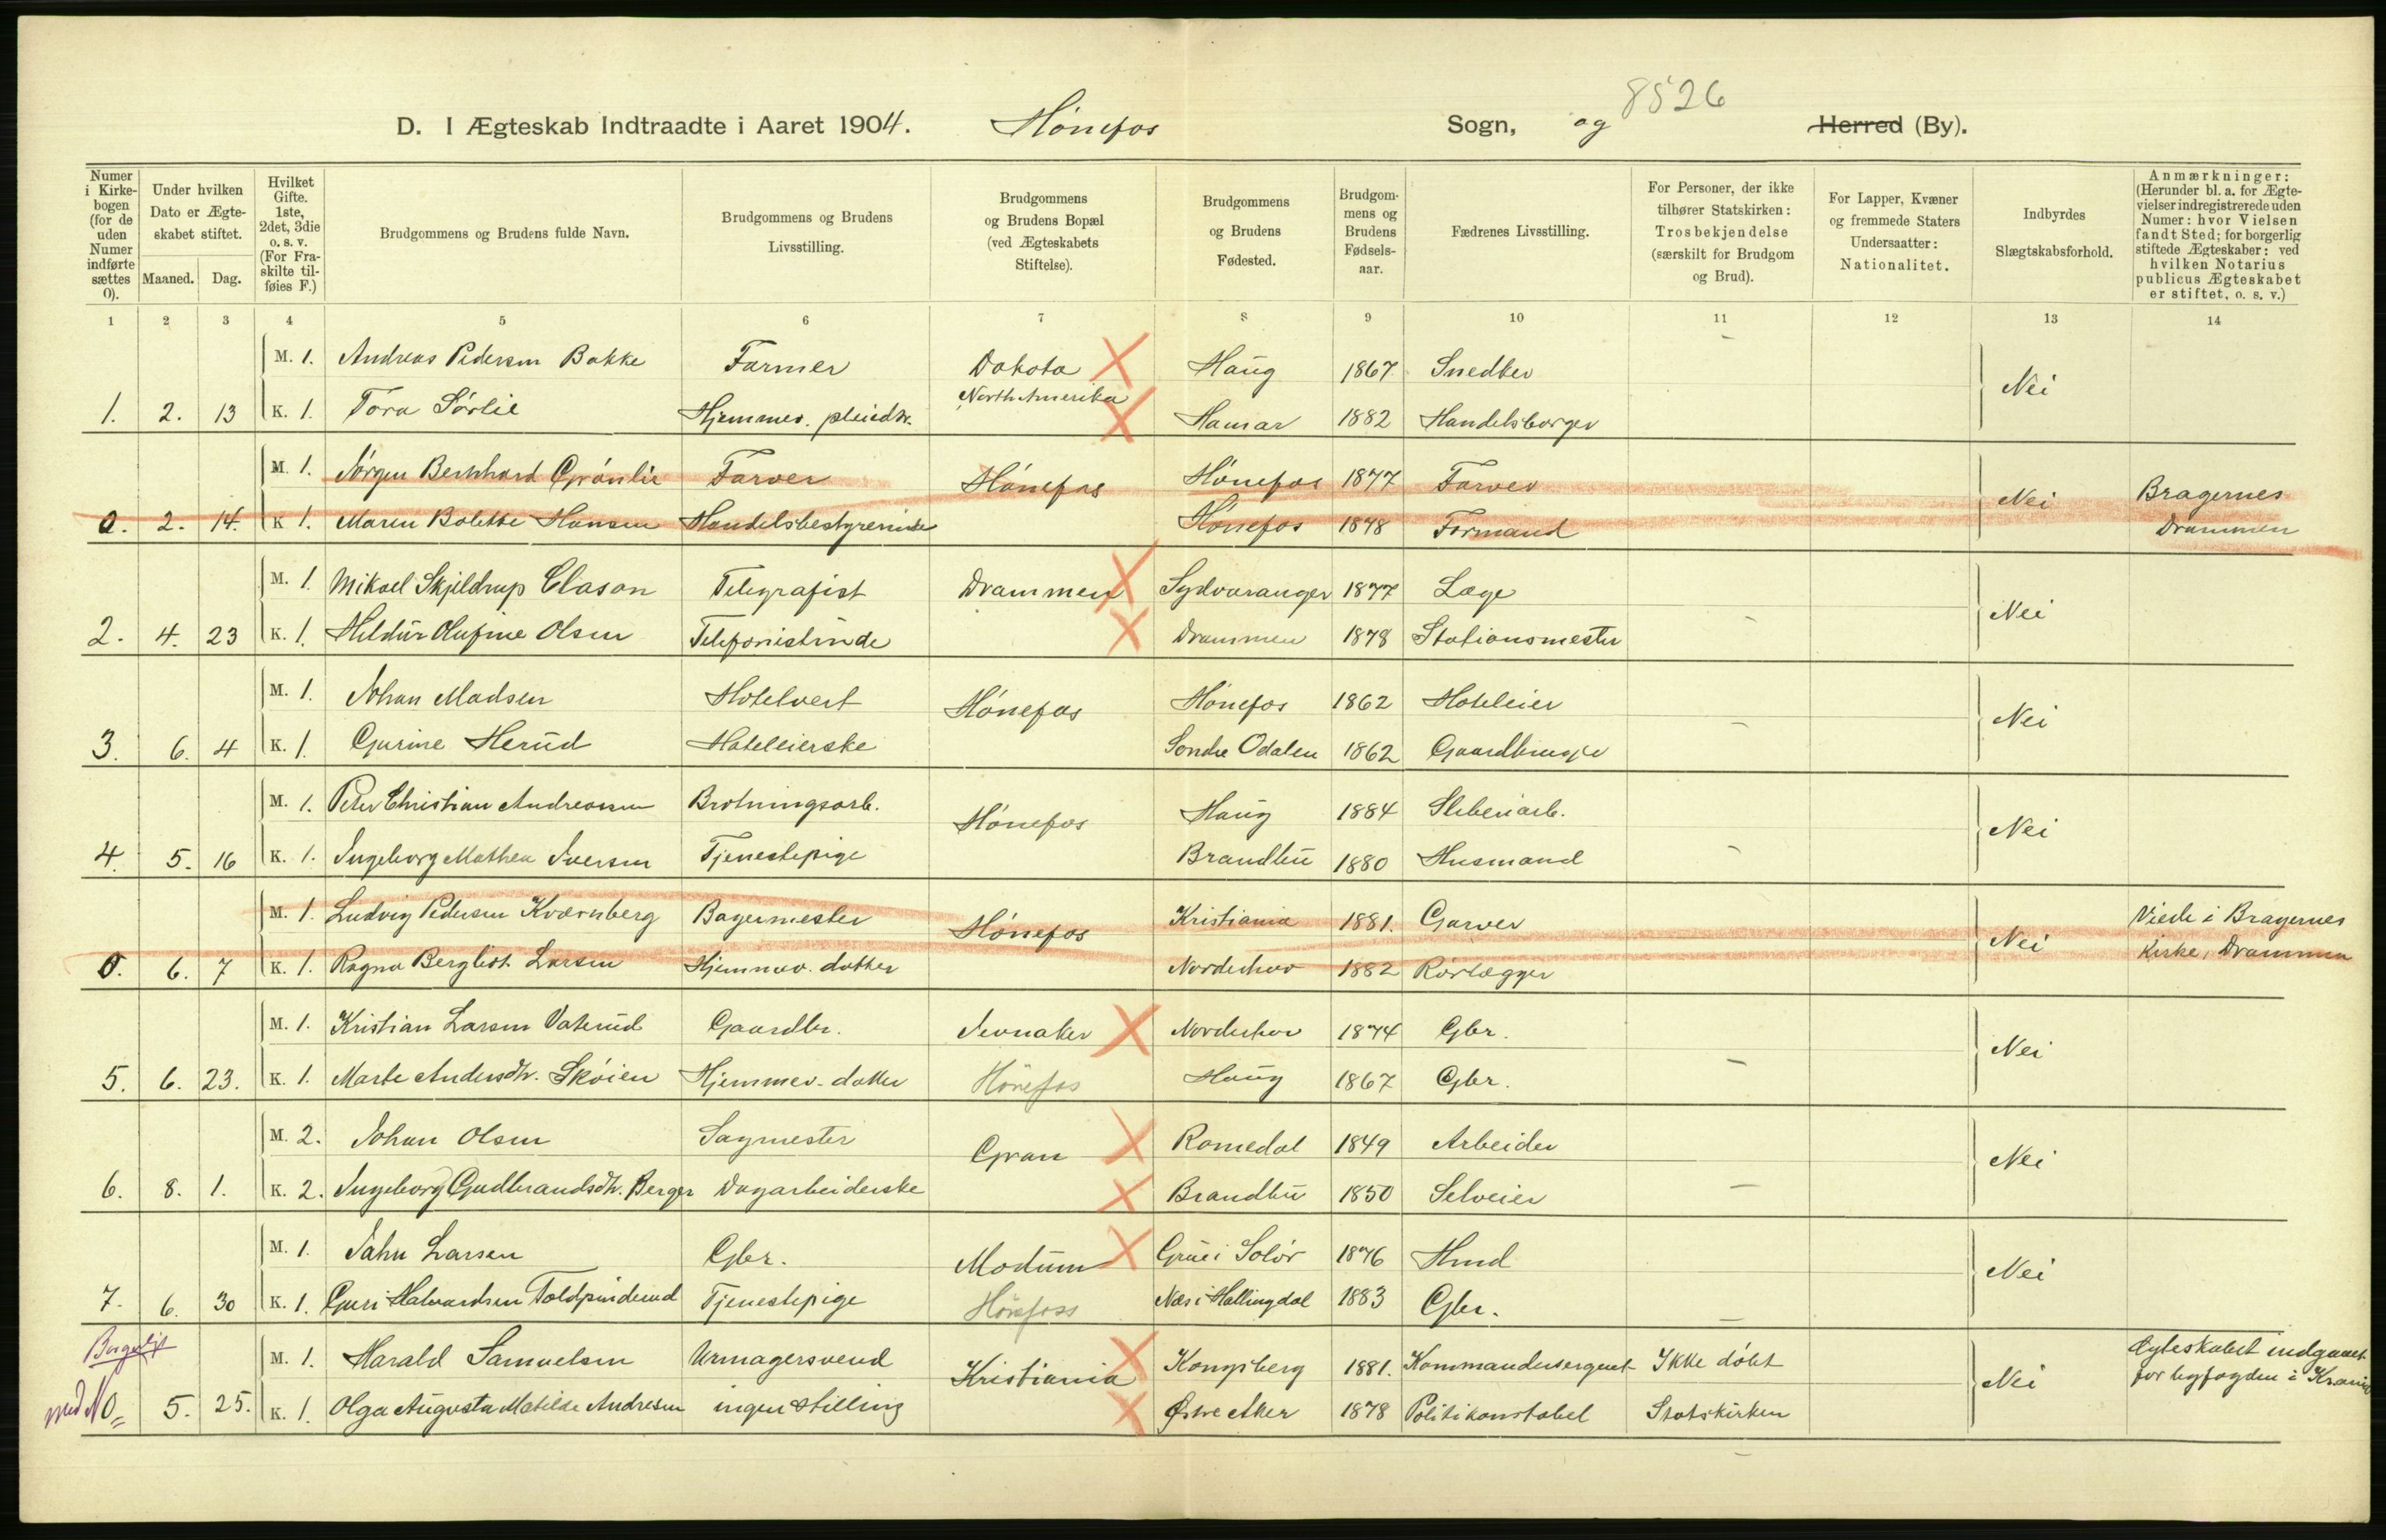 8526
D. I Ægteskab Indtraadte i Aaret 1904. Hönefos Sogn, og Herred (By).
Numer i Kirkebogen (for de uden Numer indførte sættes 0).
Under hvilken Dato er Ægteskabet stiftet.
Maaned. Dag.
Hvilket Gifte. 1ste, 2det, 3die o. s. v. (For Fraskilte tilføies F.)
Brudgommens og Brudens fulde Navn.
Brudgommens og Brudens Livsstilling.
Brudgommens og Brudens Bopæl (ved Ægteskabets Stiftelse).
Brudgommens og Brudens Fødested.
Brudgommens og Brudens Fødselsaar.
Fædrenes Livsstilling.
For Personer, der ikke tilhører Statskirken: Trosbekjendelse (særskilt for Brudgom og Brud).
For Lapper, Kvæner og fremmede Staters Undersaatter: Nationalitet.
Indbyrdes Slægtskabsforhold.
Anmærkninger: (Herunder bl. a. for Ægtevielser indregistrerede uden Numer: hvor Vielsen fandt Sted; for borgerlig stiftede Ægteskaber: ved hvilken Notarius publicus Ægteskabet er stiftet, o. s. v.)
1 2 3 4 5 6 7 8 9 10 11 12 13 14
M. 1. Andreas Pedersen Bakke Farmer Dakota Haug 1867 Snedker
North Amerika Nei
1. 2. 13 K. 1. Tora Sörlie Hjemmev. pleiedtr. Hamar 1882 Handelsborger
M. 1. Jörgen Bernhard Grönlie Farver Hönefos Hönefos 1877 Farver Nei Bragernes
0. 2. 14. K 1. Maren Bolette Hansen Handelsbestyrerinde Hönefos 1878 Formand Drammen
M. 1. Mikael Skjeldrup Clason Telegrafist Drammen Sydvaranger 1877 Læge Nei
2. 4. 23 K. 1. Hildur Olufine Olsen Telefonistinde Drammen 1878 Stationsmester
M. 1. Johan Madsen Hotelvert Hönefos Hönefos 1862 Hoteleier Nei
3. 6. 4 K. 1. Gurine Herud Hoteleierske Sondre Odalen 1862 Gaardbruger
M. 1. Peter Christian Andreassen Brotningsarb. Hönefos Haug 1884 Sliberiarb. Nei
4. 5. 16 K. 1. Ingeborg Mathea Iversen Tjenestepige Brandbu 1880 Husmand
M. 1. Ludvig Pedersen Kværnberg Bagermester Hönefos Kristiania 1881. Garver Nei Viede i Bragernes
0. 6. 7 K. 1. Ragna Bergliot Larsen Hjemmev. datter Norderhov 1882 Rörlægger Kirke, Drammen
M. 1. Kristian Larsen Vaterud Gaardbr. Jevnaker Norderhov 1874 Gbr. Nei
5. 6. 23. K. 1. Marte Andersdtr. Sköien Hjemmev. datter Hönefos Haug 1867 Gbr.
M. 2. Johan Olsen Sagmester Gran Romedal 1849 Arbeider Nei
6. 8. 1. K. 2. Ingeborg Gudbrandsdtr. Berger Dagarbeiderske Brandbu 1850 Selveier
M. 1. John Larsen Gbr. Modum Grue i Solör 1876 Hmd Nei
7. 6. 30 K. 1. Guri Halvardsen Toldpinderud Tjenestepige Hönefoss Næs i Hallingdal 1883 Gbr.
Borgerligt M. 1. Harald Samuelsen Urmagersvend Kristiania Kongsberg 1881. Kommandersergent Ikke döbt Nei Ægteskabet indgaaet
med No 0 5. 25. K. 1. Olga Augusta Matilde Andresen ingen stilling Østre Aker 1878 Politikonstabel Statskirken for byfogden i Krania